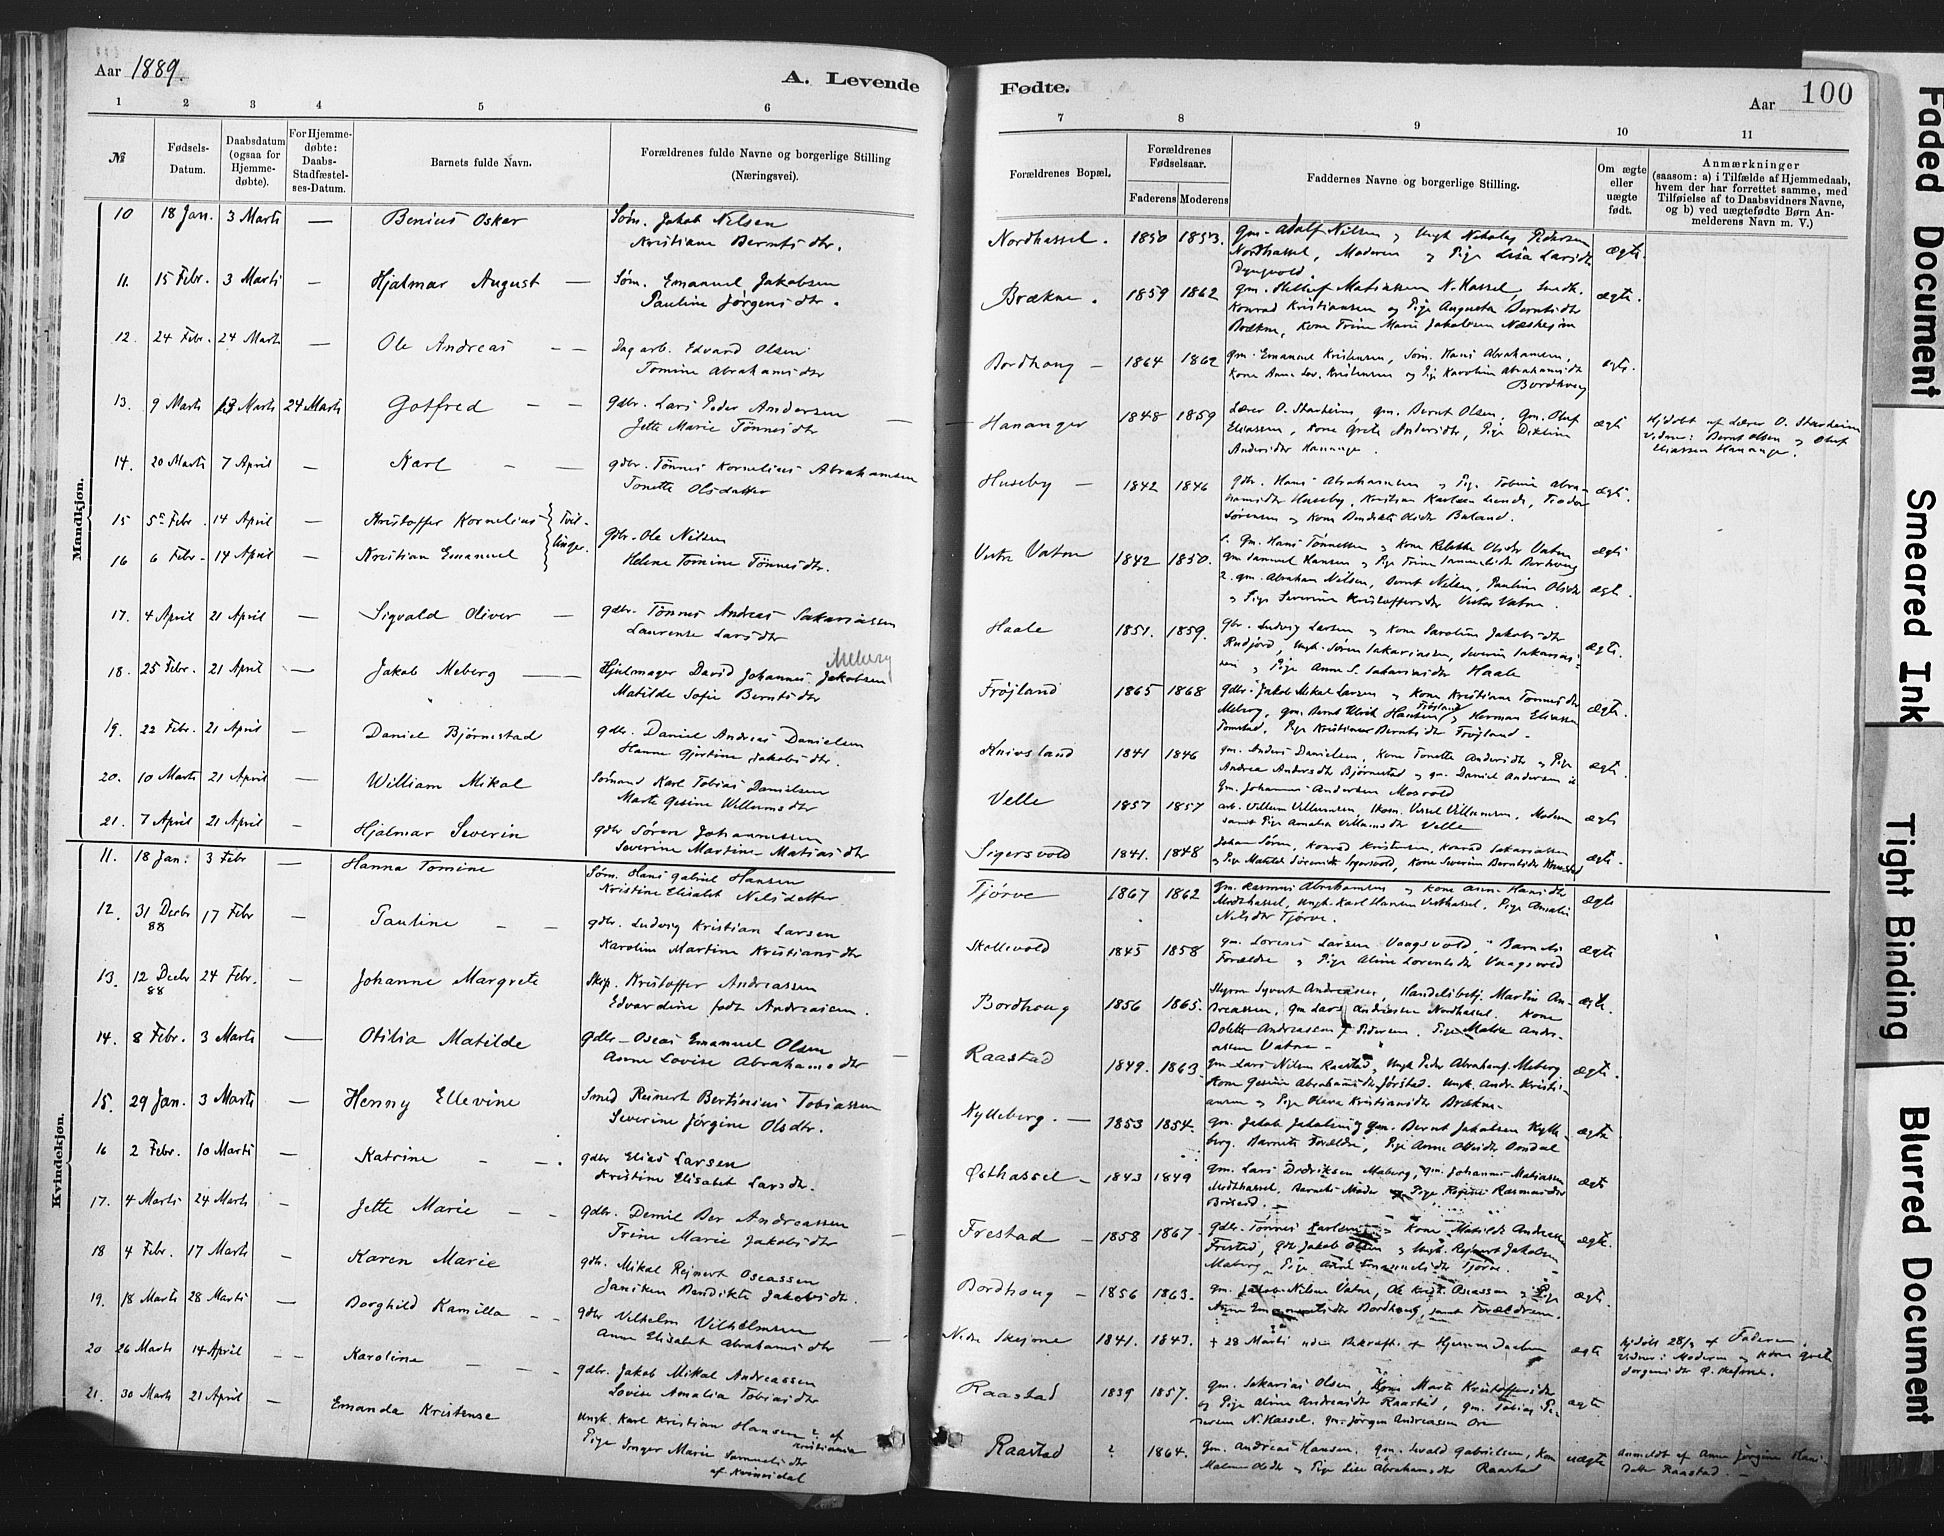 Aar 1889.
A. Levende
1 2 3 4 5 6
№
Fødsels-Datum.
Daabsdatum (ogsaa for Hjemme-døbte).
For Hjemme-døbte: Daabs-Stadfæstel-ses-Datum.
Barnets fulde Navn.
Forældrenes fulde Navne og borgerlige Stilling
(Næringsvei).
Mandkjøn.
10 18 Jan. 3 Marts — Benius Oskar Søm. Jakob Nilsen
Kristiane Berntsdtr.
11. 15 Febr. 3 Marts — Hjalmar August — Søm. Emanuel Jakobsen
Pauline Jørgensdtr.
12. 24 Febr. 24 Marts — Ole Andreas — — Dagarb. Edvard Olsen
Tomine Abrahamsdtr
13. 9 Marts 13 Marts 24 Marts Gotfred — — gdbr. Lars Peder Andersen
Jette Marie Tønnesdtr
14. 20 Marts 7 April — Karl — — gdbr. Tønnes Kornelius Abrahamsen
Tonette Olsdatter
15 5 Febr. 14 April — Kristoffer Kornelius Tvil-
16 6 Febr. 14 April — Kristian Emanuel linger. gdbr. Ole Nilsen
Helene Tomine Tønnesdtr.
17. 4 April 21 April — Sigvald Oliver — gdbr. Tønnes Andreas Sakariassen
Laurense Larsdtr
18. 25 Febr. 21 April — Jakob Meberg — — Hjulmager David Johannes Jakobsen Meberg
Matilde Sofie Berntsdtr
19. 22 Febr. 21 April — Daniel Bjørnestad gdbr. Daniel Andreas Danielsen
Hanne Gjertine Jakobsdtr.
20. 10 Marts 21 April — William Mikal Sømand Karl Tobias Danielsen
Marte Gesine Willumsdtr
21. 7 April 21 April — Hjalmar Severin gdbr Søren Johannessen
Severine Martine Matiasdtr
Kvindekjøn.
11. 18 Jan. 3 Febr — Hanna Tomine Søm. Hans Gabriel Hansen
Kristine Elisabet Nilsdatter.
12. 31 Decbr 88 17 Febr — Pauline — — gdbr. Ludvig Kristian Larsen
Karoline Martine Kristiansdtr
13. 12 Decbr 88 24 Febr. — Johanne Margrete Skip. Kristoffer Andreassen
Edvardine født Andreasen.
14. 8 Febr. 3 Marts — Otilia Matilde gdbr. Oseas Emanuel Olsen
Anne Lovise Abrahamsdtr
15. 29 Jan. 3 Marts — Henny Ellevine Smed Reinert Bertinius Tobiassen
Severine Jørgine Olsdtr.
16 2 Febr. 10 Marts — Katrine — — gdbr Elias Larsen
Kristine Elisabet Larsdtr.
17. 4 Marts 24 Marts — Jette Marie — — gdbr. Demil Ber Andreassen
Trine Marie Jakobsdtr
18 4 Febr. 17 Marts — Karen Marie gdb. Mikal Rejnert Oseassen
Jansken Bendikte Jakobsdtr.
19. 18 Marts 28 Marts — Borghild Kamilla — — gdbr Vilhelm Vilhelmsen
Anne Elisabet Abrahamsdtr
20 26 Marts 14 April — — Karoline — — gdbr. Jakob Mikal Andreassen
Lovise Amalia Tobiasdtr
21. 30 Marts 21 April — Emanda Kristense Ungk. Karl Kristian Hansen af Kristiania
Pige Inger Marie Samuelsdtr
af Kvinesdal
Fødte.
Aar 100
7 8 9 10 11
Forældrenes Bopæl.
Forældrenes Fødselsaar.
Faderens Moderens
Faddernes Navne og borgerlige Stilling.
Om ægte eller uægte født.
Anmærkninger
(saasom: a) i Tilfælde af Hjemmedaab, hvem der har forrettet samme, med Tilføielse af to Daabsvidners Navne, og b) ved uægtefødte Børn Anmelderens Navn m. V.)
Nordhassel. 1850 1853. gm. Adolf Nilsen, Ungk Nikolay Pedersen
Nordhassel, Moderen og Pige Lisa Larsdtr
ægte.
Brækne. 1859 1862 gm. Matiassen N. Hassel, Smedk.
Konrad Kristiansen og Pige Augusta Berntsdtr
Brækne, Kone Trine Marie Jakobsen
ægte.
Bordhoug — 1864 1862 gm. Emanuel Kristensen, Søm. Hans Abrahamsen,
Kone Anne Lov. Kristensen og Pig Karoline Abrahamsdtr
Bordhoug
ægte.
Hananger 1848 1859 Lærer O. Stavheim, gm. Bernt Olsen, gm. Oluf
Eliassen, Kone Grete Andersdtr, Pige
Andersdtr Hanange.
ægte
Hjdøbt af Lærer O. Stavheim
Vidner: Bernt Olsen og Oluf
Eliassen Hanange.
Huseby — 1842 1846 gdb. Hans Abrahamsen og Pige Tobine Abra-
hamsdtr Huseby, Kristian Karlsen Lunde,
Sørensen og Kone Bendikte Olsdtr Buland.
ægte.
Vestre Vatne 1842 1850. 1. gm. Hans Tønnessen og Kone Rebekke Olsdtr Vatne
gm Samuel Hansen og Pige Trine Samuelsdtr Bordhoug
ægte
2. gm. Abraham Nilsen, Bernt Nilsen, Pauline Olsdtr
og Pige Severine Kristoffersdtr Vestre Vatne.
ægte.
Haale 1851. 1859. gbr. Ludvig Larsen og Kone Karoline Jakobsdtr
Rudjord, Ungk. Søren Sakariassen, Severin Sakarias-
sen og Pige Anne S. Sakariasdtr Haale
ægte.
Frøjland 1865 1868 gdbr. Jakob Mikal Larsen og Kone Kristiane Tønnesdtr
Meberg, gm. Bernt Ulrik Hansen Frøjland og Herman Eliassen
Tomstad, Pige Kristiane Berntsdtr Frøjland.
ægte.
Knivsland 1841 1846 gm. Anders Danielsen, Kone Tonette Andersdtr og Pige
Andrea Andersdtr Bjørnestad og gm. Daniel Andersen
gm. Johannes Andersen Mosvold
ægte.
Velle 1857 1857 arb. Villum Villumsen, Moderen
samt Pige Amalia Villumsdtr Velle
ægte
Sigersvold 1841. 1848 Johan Søren, Konrad Kristensen, Konrad Sakariassen
og Pige Matilde Sørensdtr Sigersvold, Kone Severine Berntsdtr
ægte.
Tjørve 1867 1862 gm. Rasmus Abrahamsen og Kone Anne Hansdtr
Midthassel, Ungk. Karl Hansen Vesthassel, Pige Amalie
Nilsdtr Tjørve.
ægte
Skollevold 1845 1858 gm. Lorens Larsen Vaagsvold, Barnets
Forældre og Pige Aline Lorentsdtr Vaagsvold
ægte
Bordhoug 1856 1865. Styrm Syvert Andreassen, Handelsbetj. Martin An-
dreassen, gm Lars Andreassen Nordhassel. Kone
Bolette Andreassen f. Pedersen, Pige Malla Andre-
assen Vatne —
ægte.
Raastad 1849. 1863. gm. Lars Nilsen Raastad, Ungk Peder Abrahams. Meberg
Kone Gesine Abrahamsdtr Jørstad. Ungk. Andr. Kristi-
ansen og Pige Olava Kristiansdtr Brækne.
ægte.
Kylleberg. — 1853 1854. gm. Jakob Jakobsen, gm. Bernt Jakobsen Kylle-
berg. Barnets Forældre, Pige Anne Olsdtr Omdal
ægte
Østhassel — 1843 1849 gm. Lars Meberg, gm. Johannes Matiassen
Midthassel, Barnets Moder og Pige Regine Rasmusdtr
ægte
Frestad — 1858 1867. gdbr. Tønnes Karlsen, Kone Matilde Andreassen
Frestad, gdb Jakob Olsen og Ungk. Rejnert Jakobsen
Meberg, Pige Anne Emanuelsdtr Tjørve.
ægte.
Bordhoug — 1856 1863. gm. Jakob Nilsen Vatne, Ole Krist. Oseassen og Pige
Anne Emanuelsdtr Bordhoug, samt Forældrene.
ægte.
Nedre Skejone 1841. 1843. + 28 Marts uden Bekræft. + Hjemmedaaben
ægte
Hjdøbt 28/3 af Faderen,
Vidner: Moderen og Kone Grete
Jørgensdtr Ø. Skejone.
Raastad 1839 1857. gm. Sakarias Olsen, Kone Marte Kristoffersdtr
og Pige Aline Andreasdtr Raastad, gm. Tobias Pe-
dersen N. Hassel, gm. Jørgen Andreassen Ore
ægte.
Raastad ? 1864. gm. Andreas Hansen, gm. Sevald Gabrielsen, Kone
Malene Olsdtr og Pige Lise Abrahamsdtr Raastad
uægte
Anmeldt af Anne Jørgine Hans-
datter Raastad.
Faded Document
Smeared Ink
Tight Binding
Blurred Document